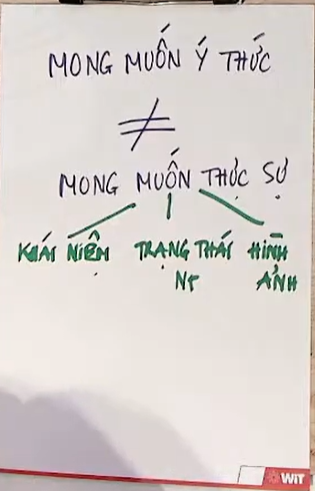 MONG MUỐN Ý THỨC
≠
MONG MUỐN THỰC SỰ
KHÁI NIỆM TRẠNG THÁI HÌNH
NT ẢNH
WIT